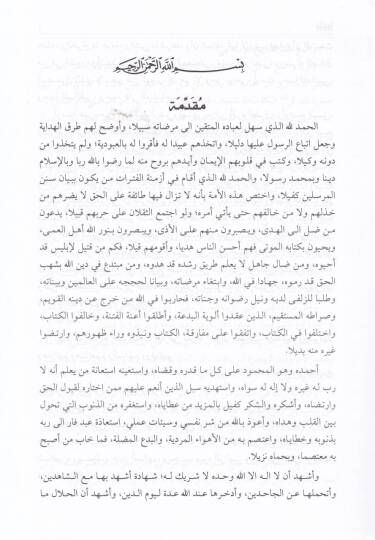 بِسْمِ اللَّهِ الرَّحْمَنِ الرَّحِيمِ
مُقَدِّمَة
الحمد لله الذي سهل لعباده المتقين الى مرضاته سبيلا، وأوضح لهم طرق الهداية
وجعل اتباع الرسول عليها دليلا، واتخذهم عبيدا له فأقروا له بالعبودية؛ ولم يتخذوا من
دونه وكيلا، وكتب في قلوبهم الإيمان وأيدهم بروح منه لما رضوا بالله ربا وبالإسلام
دينا وبمحمد رسولا، والحمد لله الذي أقام في أزمنة الفترات من يكون ببيان سنن
المرسلين كفيلا، واختص هذه الأمة بأنه لا تزال فيها طائفة على الحق لا يضرهم من
خذلهم ولا من خالفهم حتى يأتي أمره؛ ولو اجتمع الثقلان على حربهم قبيلا، يدعون
من ضل الى الهدى، ويصبرون منهم على الأذى، ويبصرون بنور الله أهل العمى،
ويحيون بكتابه الموتى فهم أحسن الناس هديا، وأقومهم قيلا، فكم من قتيل لإبليس قد
أحيوه، ومن ضال جاهل لا يعلم طريق رشده قد هدوه، ومن مبتدع في دين الله بشهب
الحق قد رموه، جهادا في الله، وابتغاء مرضاته، وبيانا لحججه على العالمين وبيناته،
وطلبا للزلفى لديه ونيل رضوانه وجناته، فحاربوا في الله من خرج عن دينه القويم،
وصراطه المستقيم، الذين عقدوا ألوية البدعة، وأطلقوا أعنة الفتنة، وخالفوا الكتاب،
واختلفوا في الكتاب، واتفقوا على مفارقة، الكتاب ونبذوه وراء ظهورهم، وارتضوا
غيره منه بديلا.
أحمده وهو المحمود على كل ما قدره وقضاه، واستعينه استعانة من يعلم أنه لا
رب له غيره ولا إله له سواه، واستهديه سبل الذين أنعم عليهم ممن اختاره لقبول الحق
وارتضاه، وأشكره والشكر كفيل بالمزيد من عطاياه، واستغفره من الذنوب التي تحول
بين القلب وهداه، وأعوذ بالله من شر نفسي وسيئات عملي، استعاذة عبد فار الى ربه
بذنوبه وخطاياه، واعتصم به من الأهواء المردية، والبدع المضلة، فما خاب من أصبح
به معتصما، وبحماه نزيلا.
وأشهد أن لا اله الا الله وحده لا شريك له؛ شهادة أشهد بها مع الشاهدين،
وأتحملها عن الجاحدين، وأدخرها عند الله عدة ليوم الدين، وأشهد أن الحلال ما